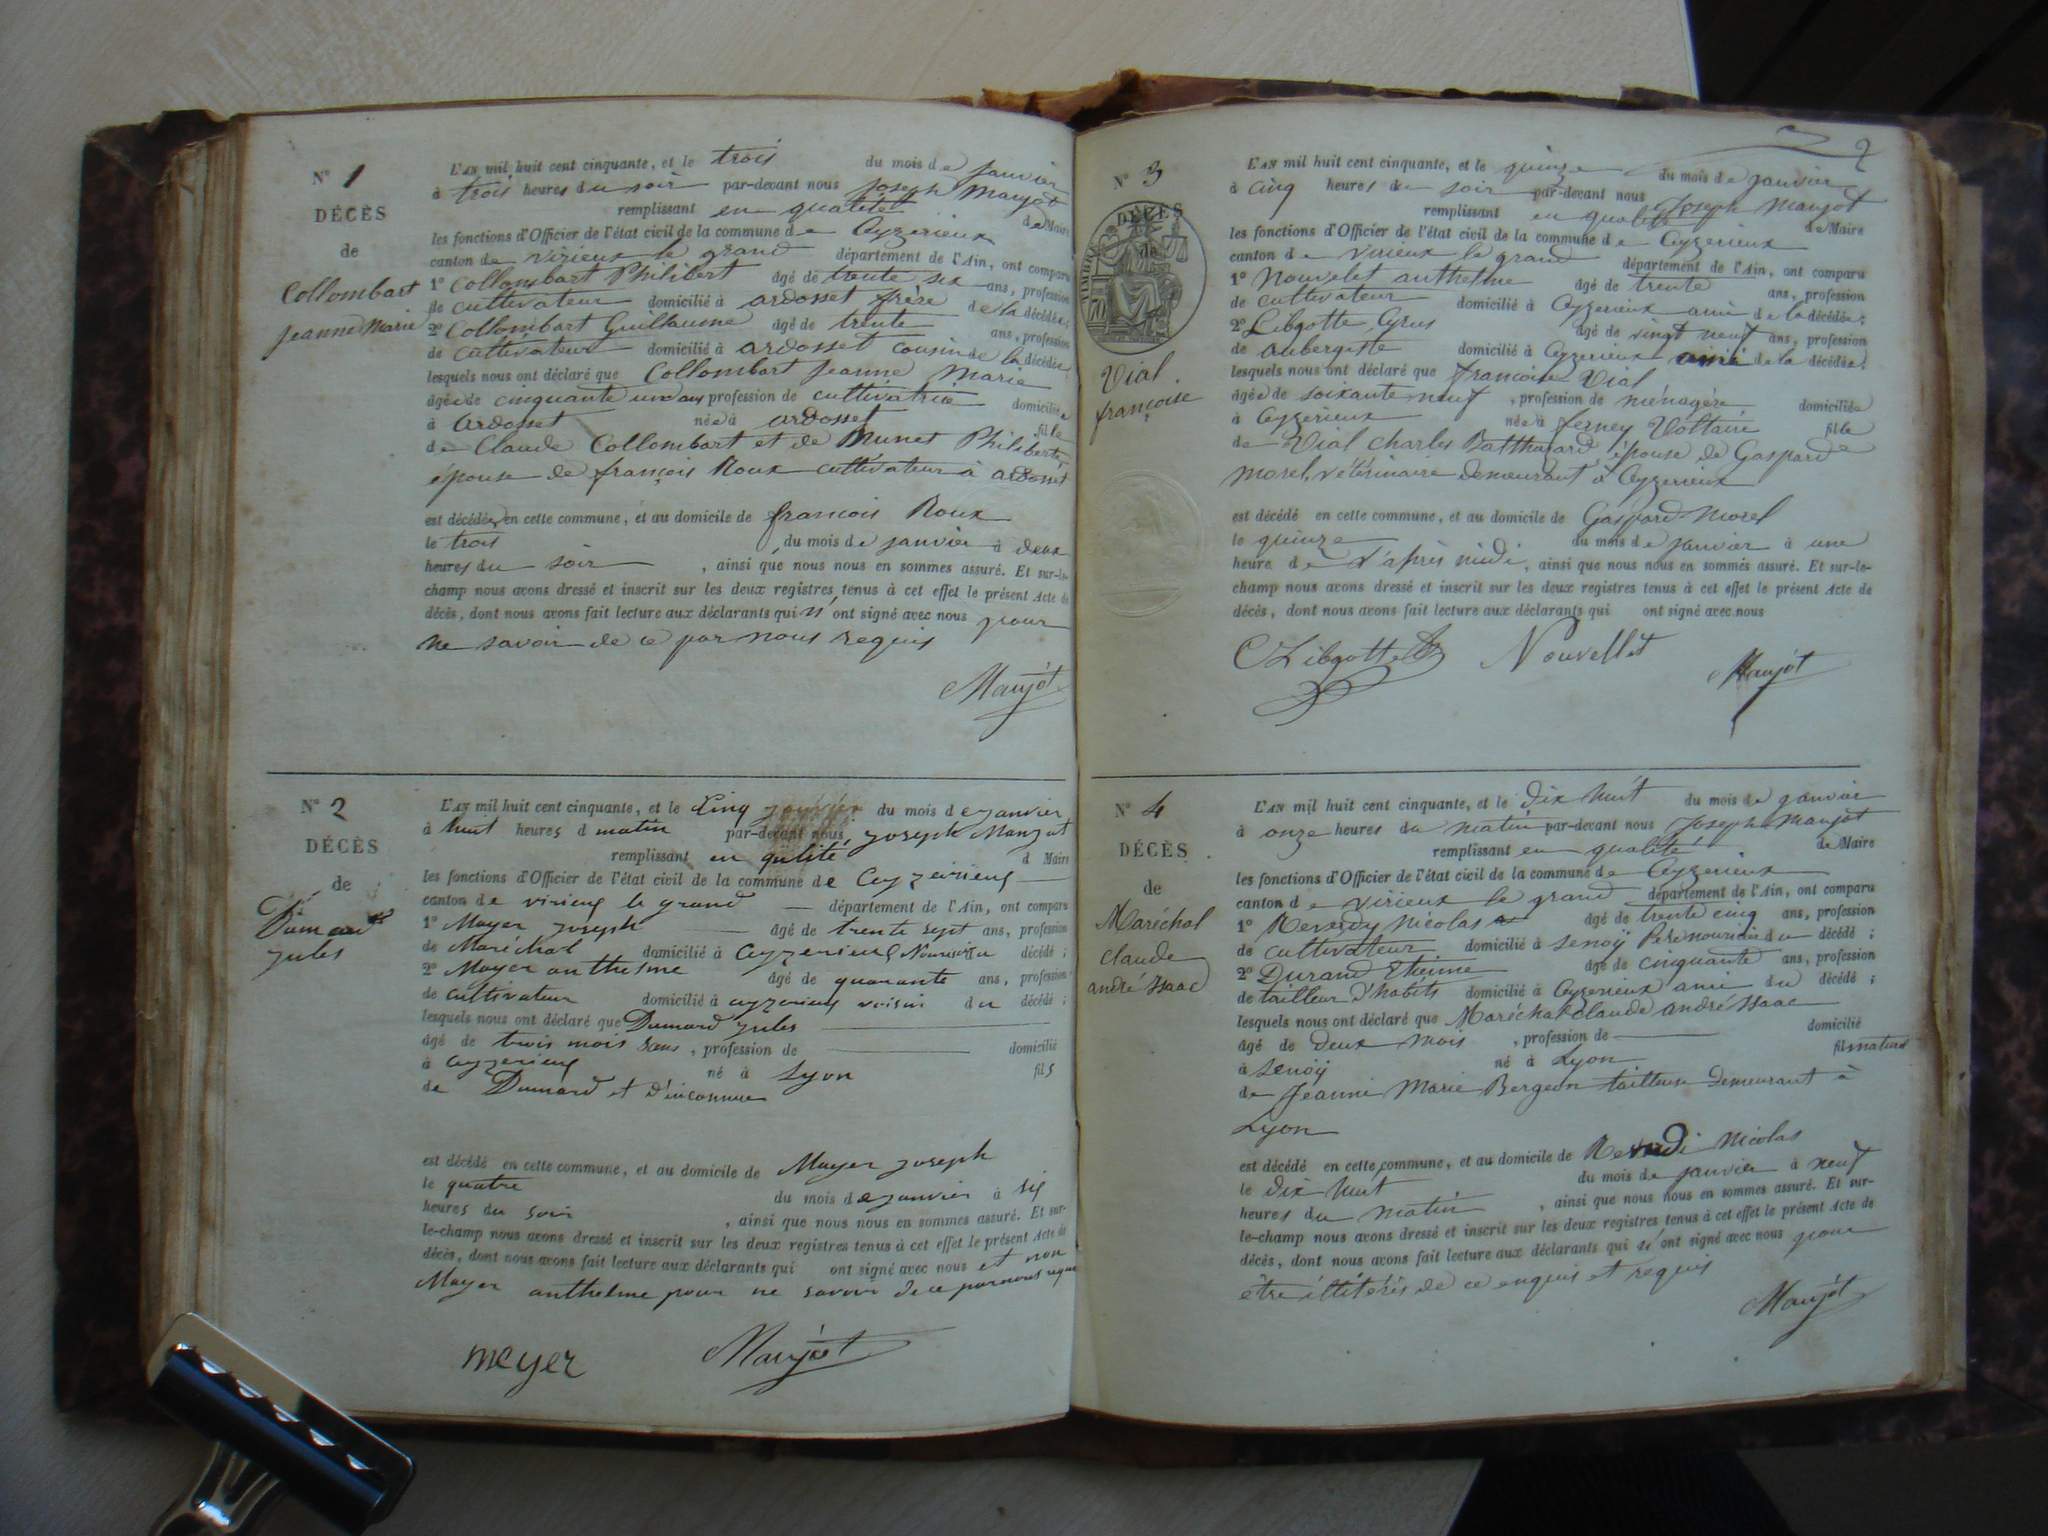 N° 1
DÉCÈS
de
Collombart
Jeanne Marie
L'AN mil huit cent cinquante, et le trois du mois de janvier
à trois heures du soir par-devant nous Joseph Maujot
remplissant en qualité de Maire
les fonctions d'Officier de l'état civil de la commune de Ceyzerieux
canton de virieux le grand département de l'Ain, ont comparu
1° Collombart Philibert âgé de trente six ans, profession
de cultivateur domicilié à ardosset frère de la décédée;
2° Collombart Guillaume âgé de trente ans, profession
de cultivateur domicilié à ardosset cousin de la décédée;
lesquels nous ont déclaré que Collombart Jeanne Marie
âgée de cinquante un ans profession de cultivatrice domiciliée
à ardosset née à ardosset fille
de Claude Collombart et de Munet Philiberte
épouse de françois Roux cultivateur à ardosset
est décédée en cette commune, et au domicile de françois Roux
le trois du mois de janvier à deux
heures du soir, ainsi que nous nous en sommes assuré. Et sur-le-
champ nous avons dressé et inscrit sur les deux registres tenus à cet effet le présent Acte de
décès, dont nous avons fait lecture aux déclarants qui n'ont signé avec nous pour
ne savoir de ce par nous requis
Maujot
N° 2
DÉCÈS
de
Dumard
jules
L'AN mil huit cent cinquante, et le Cinq janvier du mois de janvier
à huit heures d matin par-devant nous joseph Maujot
remplissant en qulité d Maire
les fonctions d'Officier de l'état civil de la commune de Ceyzerieux
canton de virieux le grand département de l'Ain, ont comparu
1° Mayer joseph âgé de trente sept ans, profession
de Maréchal domicilié à Ceyzerieux Nourissier décédé;
2° Mayer anthelme âgé de quarante ans, profession
de cultivateur domicilié à ceyzerieux voisin du décédé;
lesquels nous ont déclaré que Dumard jules
âgé de trois mois sans, profession de domicilié
à ceyzerieux né à Lyon fils
de Dumard et d'inconnue
est décédé en cette commune, et au domicile de Mayer joseph
le quatre du mois de janvier à six
heures du soir, ainsi que nous nous en sommes assuré. Et sur-
le-champ nous avons dressé et inscrit sur les deux registres tenus à cet effet le présent Acte de
décès, dont nous avons fait lecture aux déclarants qui ont signé avec nous et non
Mayer anthelme pour ne savoir de ce par nous requis
meyer Maujot
2
N° 3
DÉCÈS
de
Vial
françoise
L'AN mil huit cent cinquante, et le quinze du mois de janvier
à cinq heures du soir par-devant nous Joseph Maujot
remplissant en qualité de Maire
les fonctions d'Officier de l'état civil de la commune de Ceyzerieux
canton de virieux le grand département de l'Ain, ont comparu
1° Nouvelet anthelme âgé de trente ans, profession
de cultivateur domicilié à Ceyzerieux ami de la décédée;
2° Libgotte Cyrus âgé de vingt neuf ans, profession
de aubergiste domicilié à Ceyzerieux ami de la décédée;
lesquels nous ont déclaré que françoise Vial
âgée de soixante neuf, profession de ménagère domiciliée
à Ceyzerieux née à ferney Voltaire fille
de Vial Charles Batthazard épouse de Gaspard
Morel, vétérinaire demeurant à Ceyzerieux
est décédé en cette commune, et au domicile de Gaspard Morel
le quinze du mois de janvier à une
heure de d'après midi, ainsi que nous nous en sommes assuré. Et sur-le-
champ nous avons dressé et inscrit sur les deux registres tenus à cet effet le présent Acte de
décès, dont nous avons fait lecture aux déclarants qui ont signé avec nous
C Libgotte Nouvellet Maujot
N° 4
DÉCÈS
de
Maréchal
claude
andré Isaac
L'AN mil huit cent cinquante, et le dix huit du mois de janvier
à onze heures du matin par-devant nous Joseph Maujot
remplissant en qualité de Maire
les fonctions d'Officier de l'état civil de la commune de Ceyzerieux
canton de virieux le grand département de l'Ain, ont comparu
1° Reverdy Nicolas âgé de trente cinq ans, profession
de cultivateur domicilié à Senoÿ Père nouricier du décédé;
2° Durand Etienne âgé de cinquante ans, profession
de tailleur d'habits domicilié à Ceyzerieux ami du décédé;
lesquels nous ont déclaré que Maréchal claude andré Isaac
âgé de deux mois, profession de domicilié
à Senoÿ né à Lyon fils naturel
de Jeanne Marie Bergeon tailleuse demeurant à
Lyon
est décédé en cette commune, et au domicile de Reverdi Nicolas
le dix huit du mois de janvier à neuf
heures du matin, ainsi que nous nous en sommes assuré. Et sur-
le-champ nous avons dressé et inscrit sur les deux registres tenus à cet effet le présent Acte de
décès, dont nous avons fait lecture aux déclarants qui n'ont signé avec nous pour
être illitérés de ce enquis et requis
Maujot